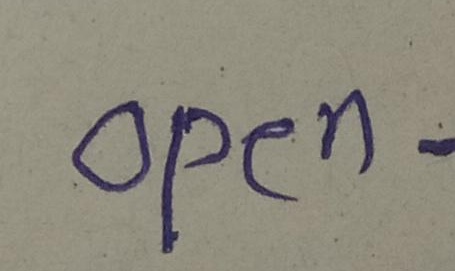 open -